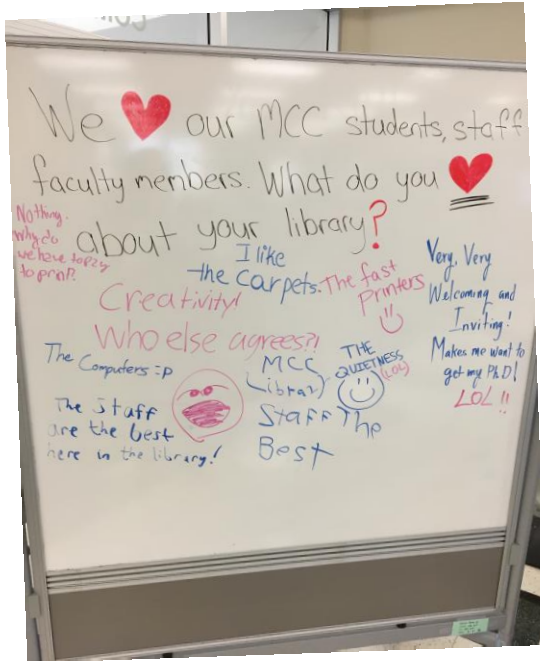 We ❤ our MCC students, staff
faculty members. What do you ❤
about your library?
Nothing.
Why do
we have to pay
to print?
I like
the carpets.
The fast
Printers
Very, Very
Welcoming and
Inviting!
Makes me want to
get my Ph.D!
LOL!!
Creativity!
Who else agrees?!
The Computers =P
THE
QUIETNESS
(LOL)
MCC
Library
Staff The
Best
The staff
are the best
here in the library!